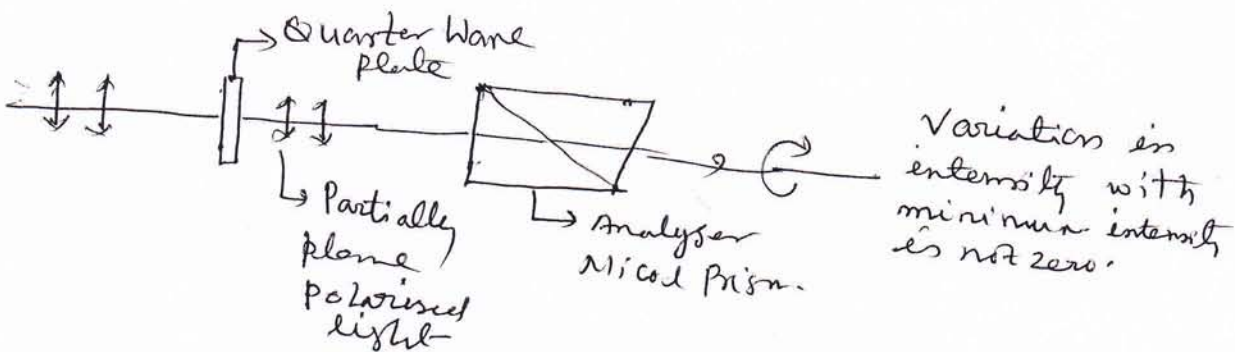 Quarter Wave
plate
Partially
plane
polarised
light
Analyser
Nicol Prism.
Variation in
intensity with
minimum intensity
is not zero.